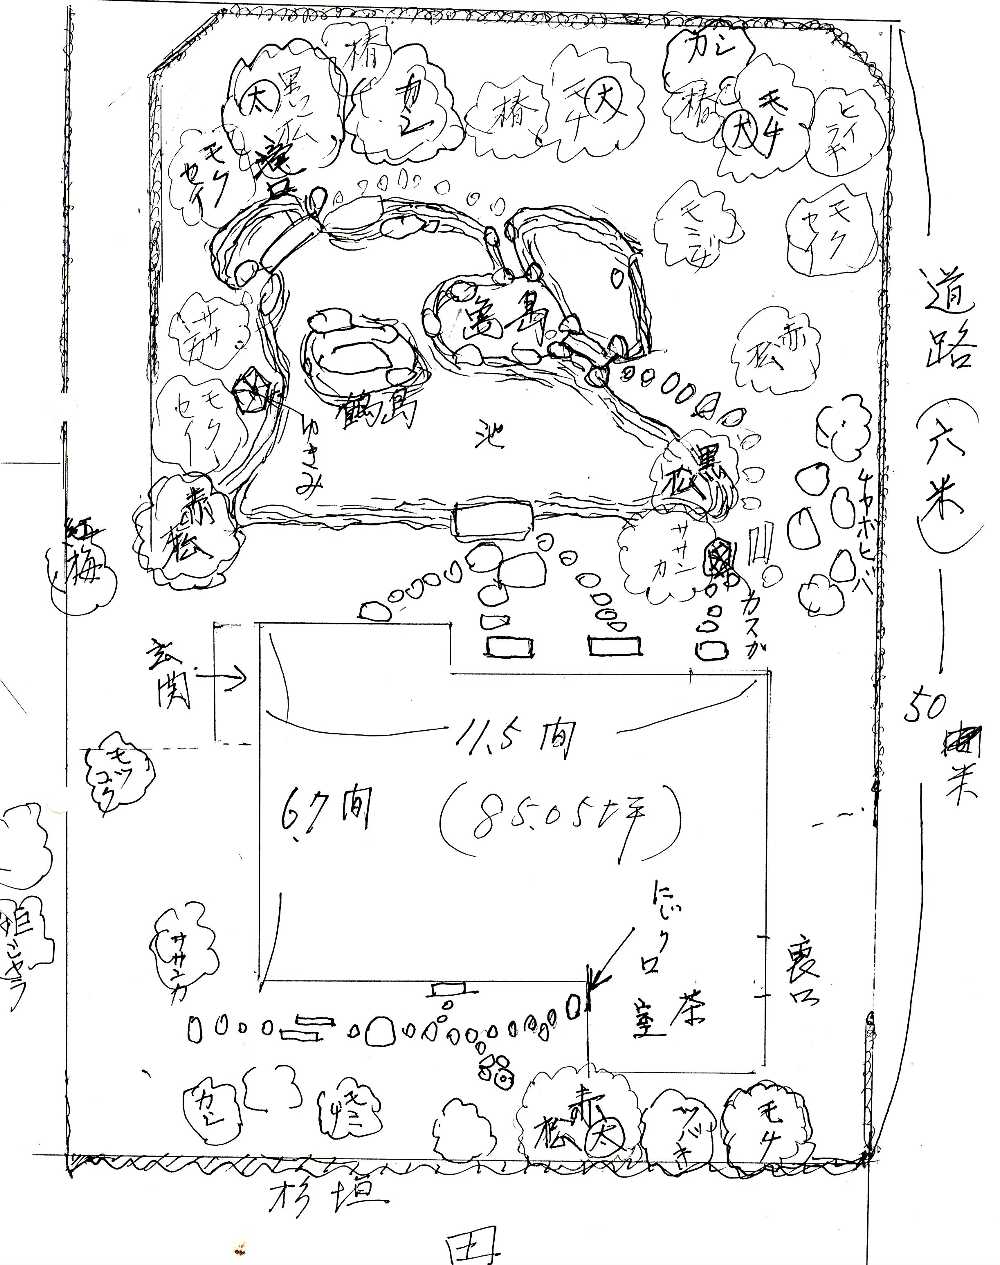 カシ
椿
黒松
大
カシ
椿
モチ
大
椿
モチ
大
ヒイラギ
モクセイ
滝口
モミヂ
モクセイ
宮島
赤松
鶴島
モクセイ
ゆきみ
池
黒松
赤松
紅梅
サザンカ
カスガ
チャボヒバ
道路(六米)
50米
玄関
11.5間
6.7間
(85.05坪)
モッコク
サザンカ
にじり口
茶室
裏口
カシ
赤松
大
ツバキ
モチ
杉垣
田